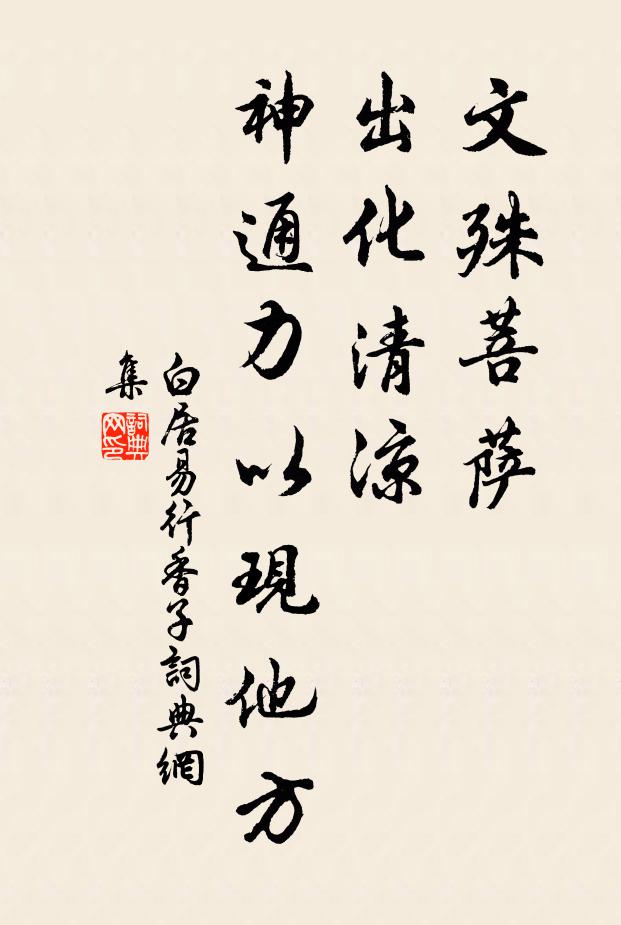 文殊菩薩
出化清涼
神通力以現他方
白居易行香子詞典網
集
詞典
网印